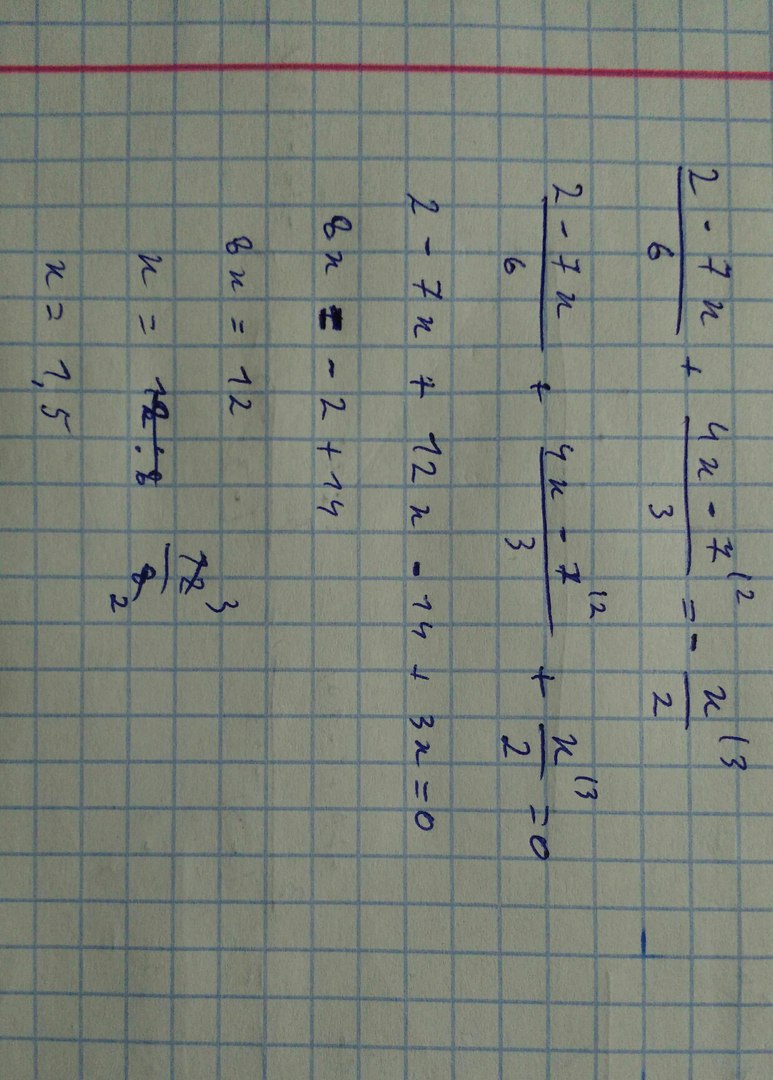 (2 - 7x)/6 + (4x - 7)/3 |2 = - x/2 |3
(2 - 7x)/6 + (4x - 7)/3 |2 + x/2 |3 = 0
2 - 7x + 12x - 14 + 3x = 0
8x = - 2 + 14
8x = 12
x = 12 : 8 12/8 3 2
x = 1,5